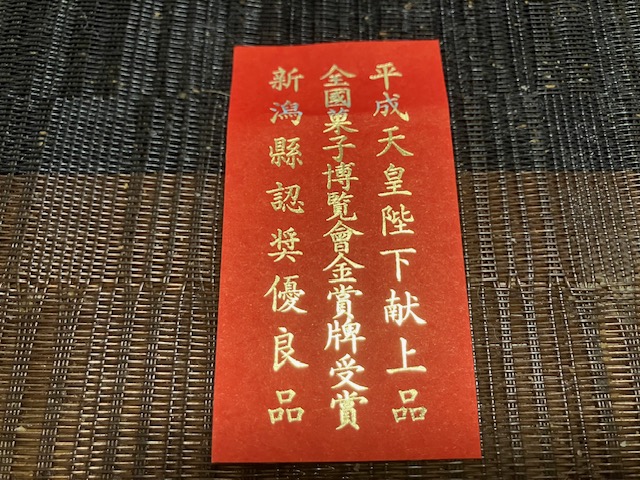 平成天皇陛下献上品
全國菓子博覧會金賞牌受賞
新潟縣認奨優良品